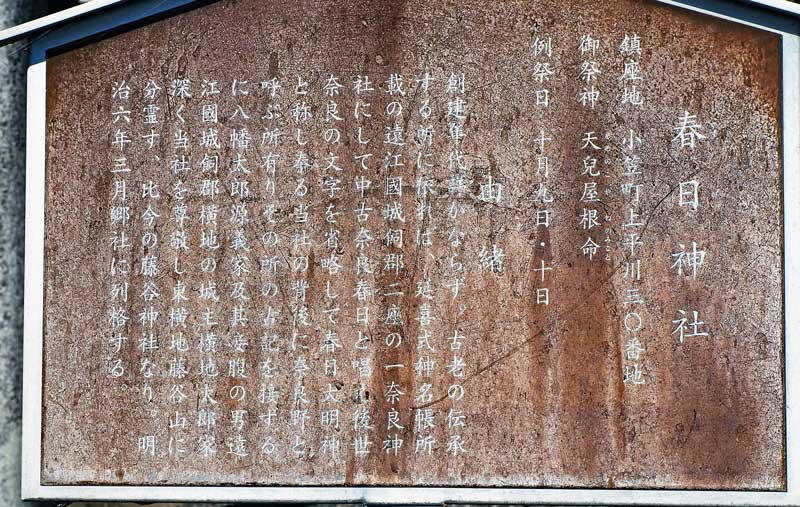 春日神社
鎮座地 小笠町上平川三〇番地
御祭神 天兒屋根命
例祭日 十月九日・十日
由緒
創建年代詳かならず。古老の伝承
する所に依れば、延喜式神名帳所
載の遠江國城飼郡二座の一奈良神
社にして中古奈良春日と唱れ後世
奈良の文字を省略して春日大明神
と称し奉る当社の背後に奈良野と
呼ぶ所有りその所の古記を按ずる
に八幡太郎源義家及其妾腹の男遠
江國城飼郡横地の城主横地太郎家
深く当社を尊敬し東横地藤谷山に
分霊す、比今の藤谷神社なり。明
治六年三月郷社に列格する。